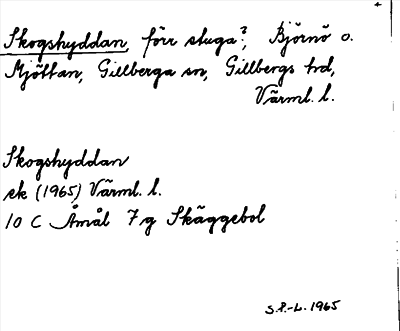 Skogshyddan, förr stuga?, Björnö o.
Mjöttan, Gillberga sn, Gillbergs hd,
Värml. l.
Skogshyddan
ek (1965) Värml. l.
10 C Åmål 7 g Skäggebol
S.P.-L. 1965